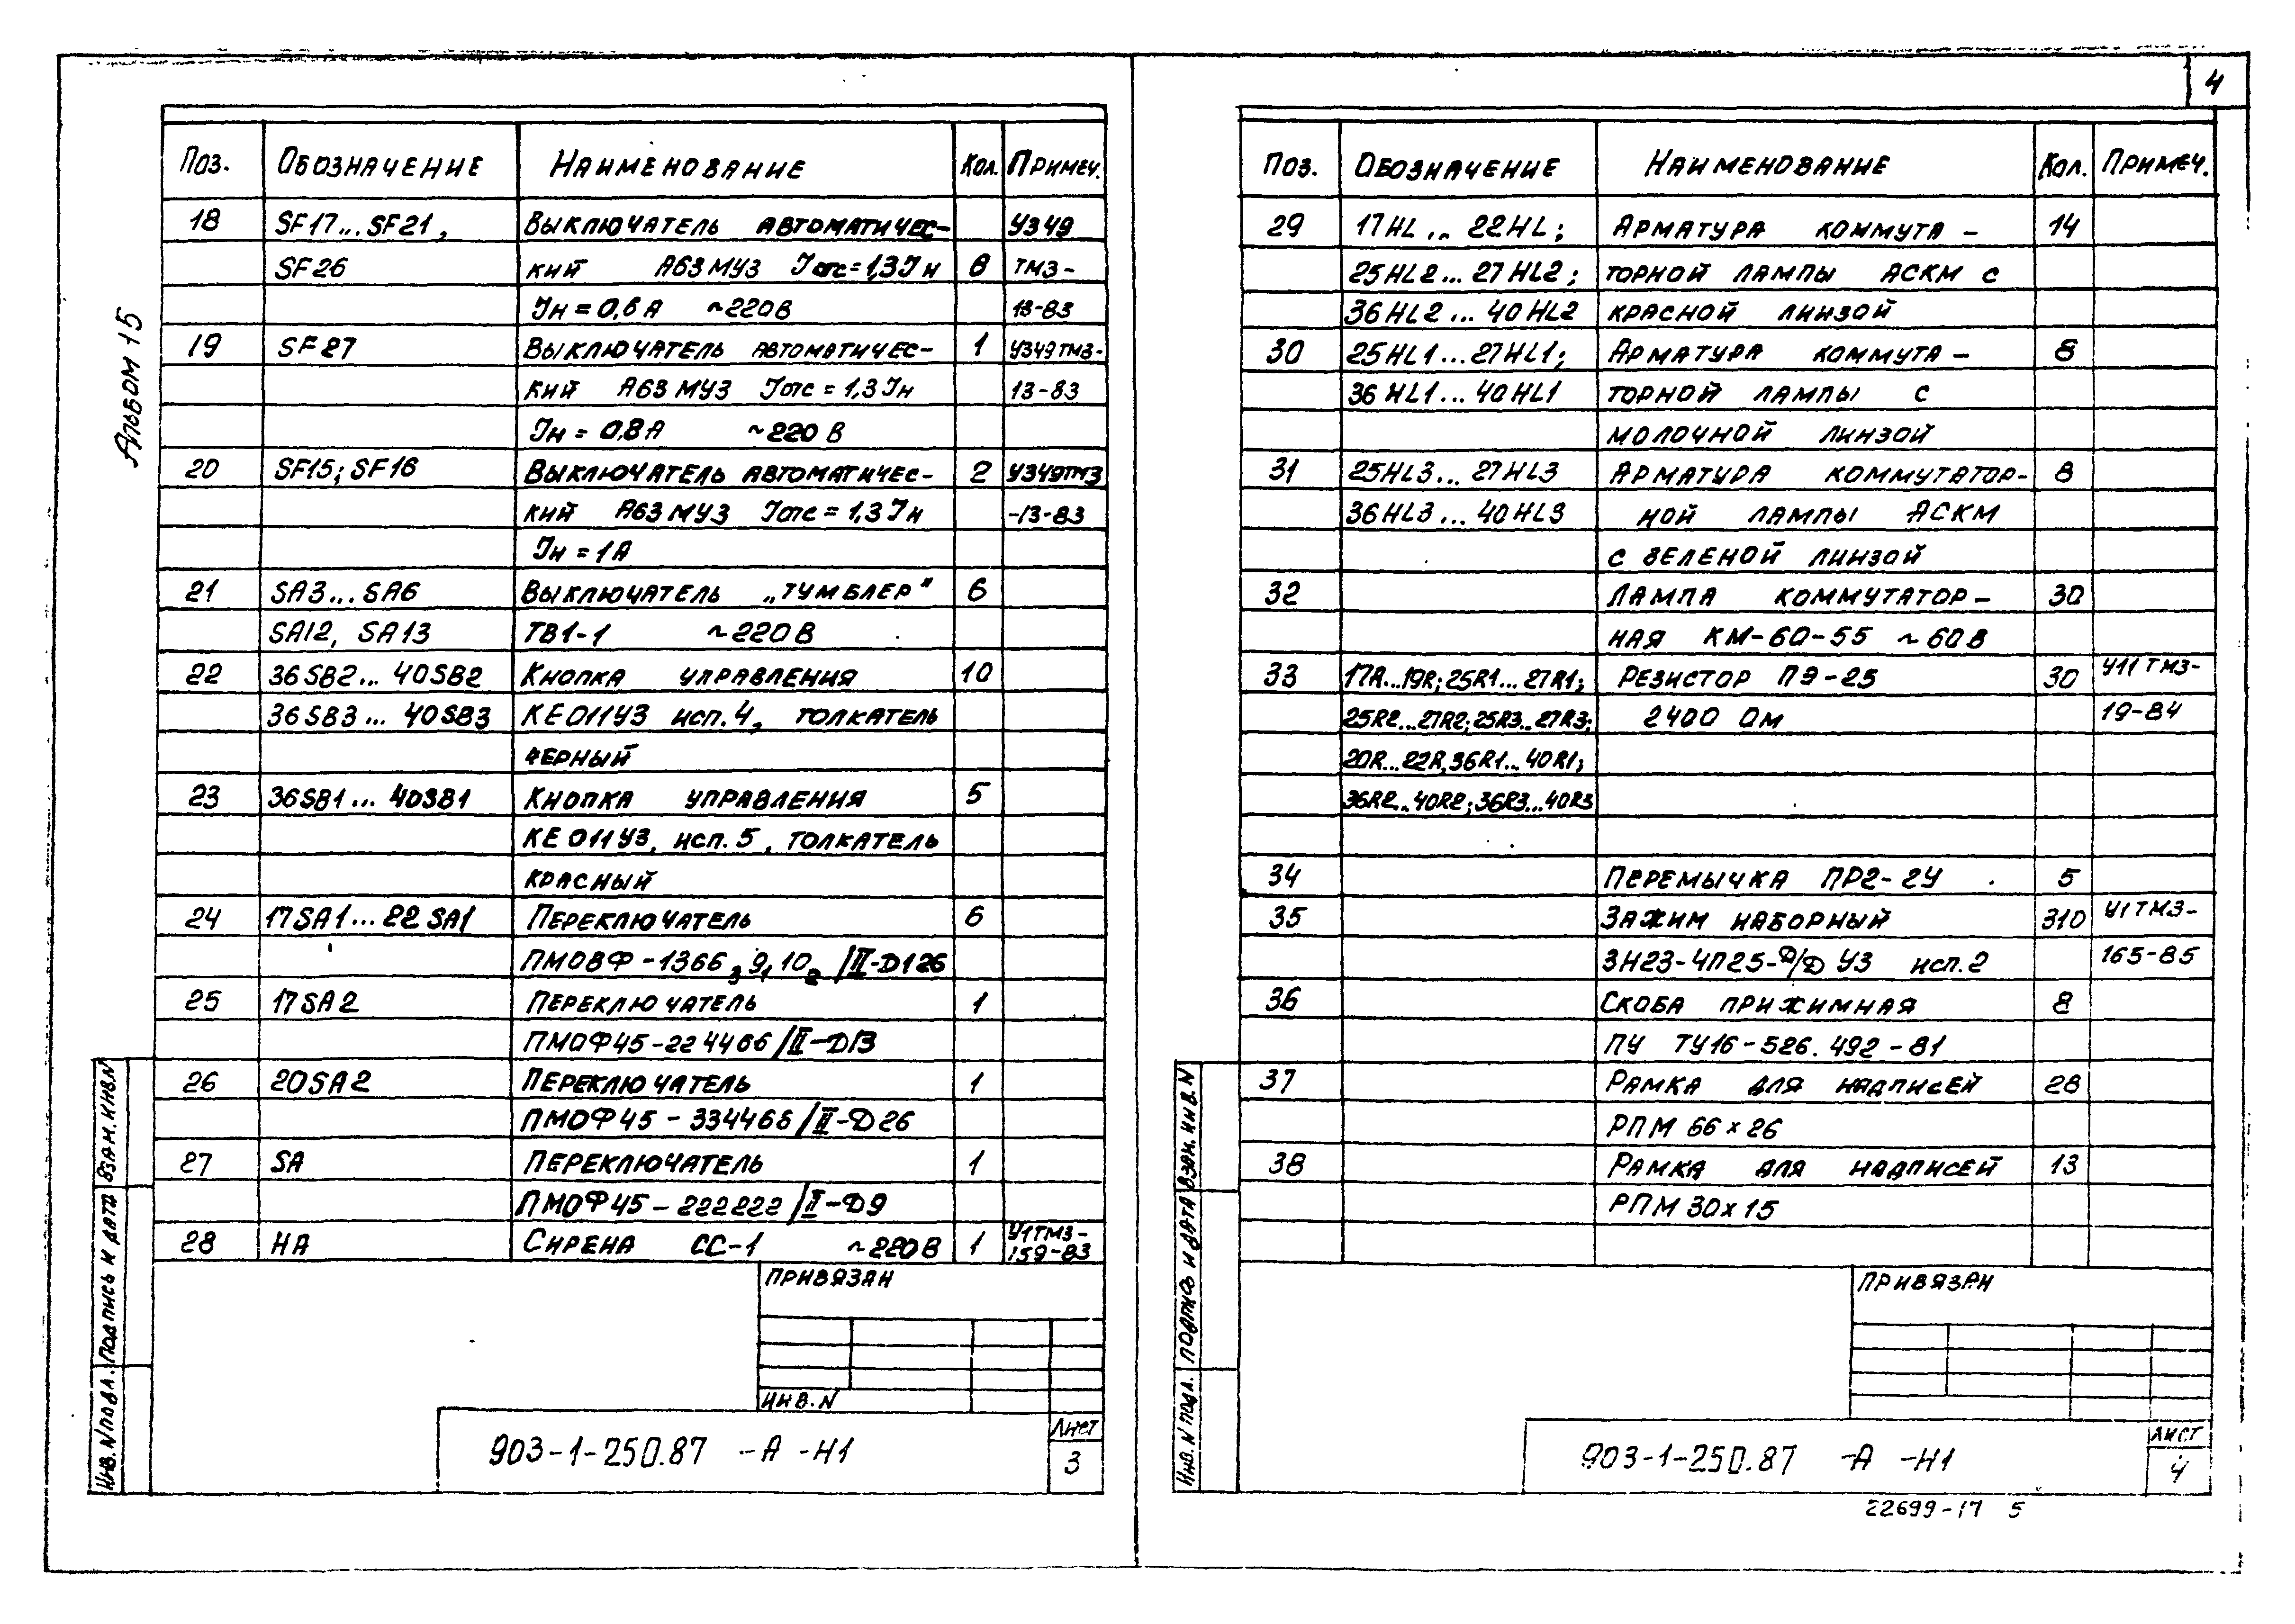 4
Альбом 15
Поз. Обозначение Наименование Кол. Примеч.
18 SF17...SF21, Выключатель автоматичес- У349
SF26 кий А63МУЗ Iотс=1,3Iн 6 ТМЗ-
Iн=0,6А ~220В 13-83
19 SF27 Выключатель автоматичес- 1 У349ТМЗ-
кий А63МУЗ Iотс=1,3Iн 13-83
Iн=0,8А ~220В
20 SF15; SF16 Выключатель автоматичес- 2 У349ТМЗ
кий А63МУЗ Iотс=1,3Iн -13-83
Iн=1А
21 SA3...SA6 Выключатель „тумблер" 6
SA12, SA13 ТВ1-1 ~220В
22 36SB2...40SB2 Кнопка управления 10
36SB3...40SB3 КЕ011У3 исп.4, толкатель
черный
23 36SB1...40SB1 Кнопка управления 5
КЕ011У3, исп.5, толкатель
красный
24 17SA1...22SA1 Переключатель 6
/II-D126
25 17SA2 Переключатель 1
ПМОФ45-224466/II-D13
26 20SA2 Переключатель 1
ПМОФ45-334466/II-Д26
27 SA Переключатель 1
ПМОФ45-222222/II-Д9
28 НА Сирена СС-1 ~220В 1 У1ТМЗ-
159-83
Привязан
Инв.N
903-1-250.87 -А -Н1
Лист
3
Инв.N подл. Подпись и дата Взам.инв.N
Поз. Обозначение Наименование Кол. Примеч.
29 17HL...22HL; Арматура коммута- 14
25HL2...27HL2; торной лампы АСКМ с
36HL2...40HL2 красной линзой
30 25HL1...27HL1; Арматура коммута- 8
36HL1...40HL1 торной лампы с
молочной линзой
31 25HL3...27HL3 Арматура коммутатор- 8
36HL3...40HL3 ной лампы АСКМ
с зеленой линзой
32 Лампа коммутатор- 30
ная КМ-60-55 ~60В
33 17R...19R; 25R1...27R1; Резистор ПЭ-25 30 У11ТМЗ-
25R2...27R2; 25R3...27R3; 2400 Ом 19-84
20R...22R, 36R1...40R1;
36R2...40R2; 36R3...40R3
34 Перемычка ПР2-2У 5
35 Зажим наборный 310 У1ТМЗ-
ЗН23-4П25-Д/Д У3 исп.2 165-85
36 Скоба прижимная 8
ПУ ТУ16-526.492-81
37 Рамка для надписей 28
РПМ 66×26
38 Рамка для надписей 13
РПМ 30×15
Привязан
903-1-250.87 -А -Н1
Лист
4
Инв.N подл. Подпись и дата Взам.инв.N
22699-17 5